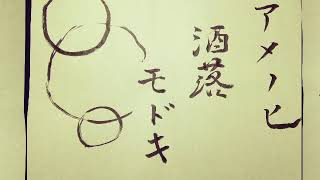 アメノヒ
酒落
モドキ